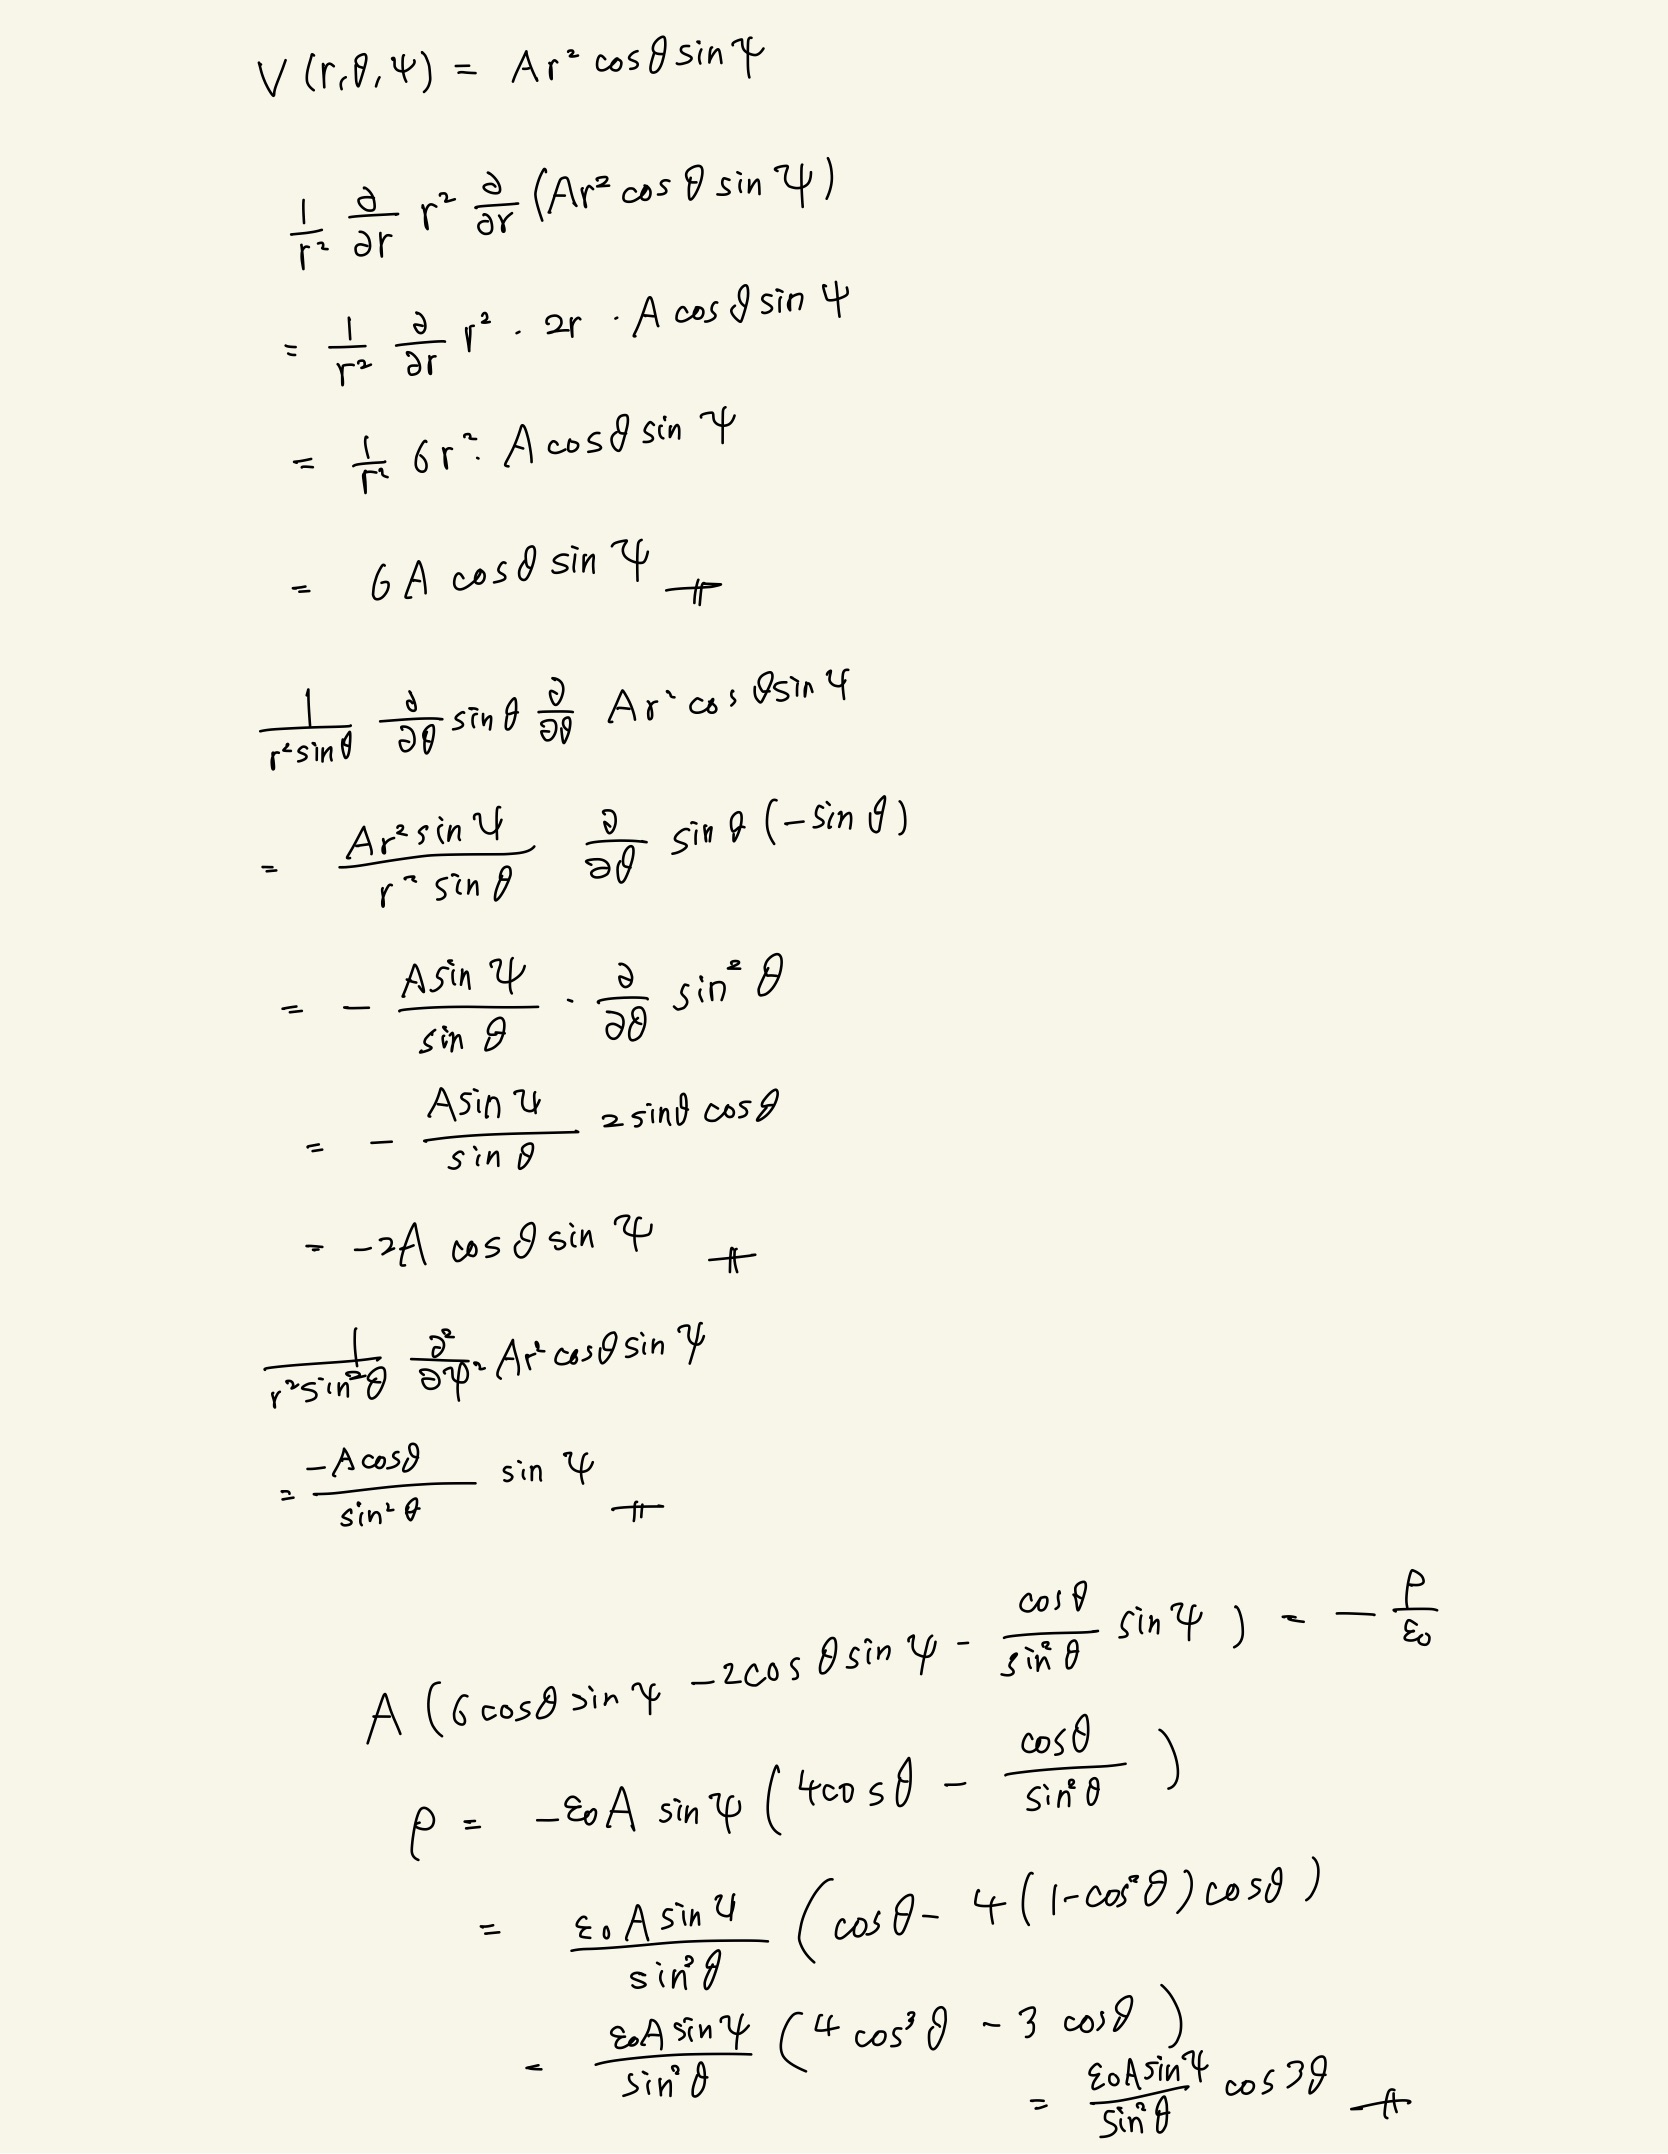 V (r, θ, ψ) = Ar² cosθ sinψ
1/r² ∂/∂r r² ∂/∂r (Ar² cosθ sinψ)
= 1/r² ∂/∂r r² · 2r · A cosθ sinψ
= 1/r² 6r² · A cosθ sinψ
= 6A cosθ sinψ
1/(r² sinθ) ∂/∂θ sinθ ∂/∂θ Ar² cosθ sinψ
= (Ar² sinψ)/(r² sinθ) ∂/∂θ sinθ (-sinθ)
= - (A sinψ)/(sinθ) · ∂/∂θ sin²θ
= - (A sinψ)/(sinθ) 2 sinθ cosθ
= -2A cosθ sinψ
1/(r² sin²θ) ∂²/∂ψ² Ar² cosθ sinψ
= (-A cosθ)/(sin²θ) sinψ
A (6 cosθ sinψ - 2cosθ sinψ - (cosθ)/(sin²θ) sinψ) = - ρ/ε₀
ρ = -ε₀A sinψ (4cosθ - (cosθ)/(sin²θ))
= (ε₀A sinψ)/(sin²θ) (cosθ - 4(1-cos²θ)cosθ)
= (ε₀A sinψ)/(sin²θ) (4 cos³θ - 3 cosθ)
= (ε₀A sinψ)/(sin²θ) cos3θ